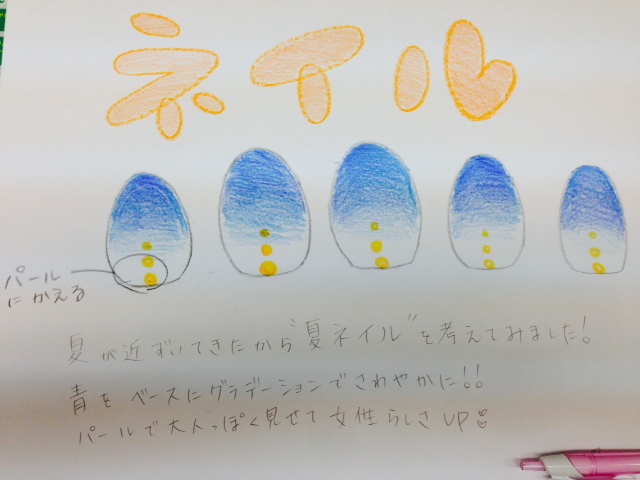 ネイル
パール
にかえる
夏が近ずいてきたから"夏ネイル"を考えてみました!
青をベースにグラデーションでさわやかに!!
パールで大人っぽく見せて女性らしさUP